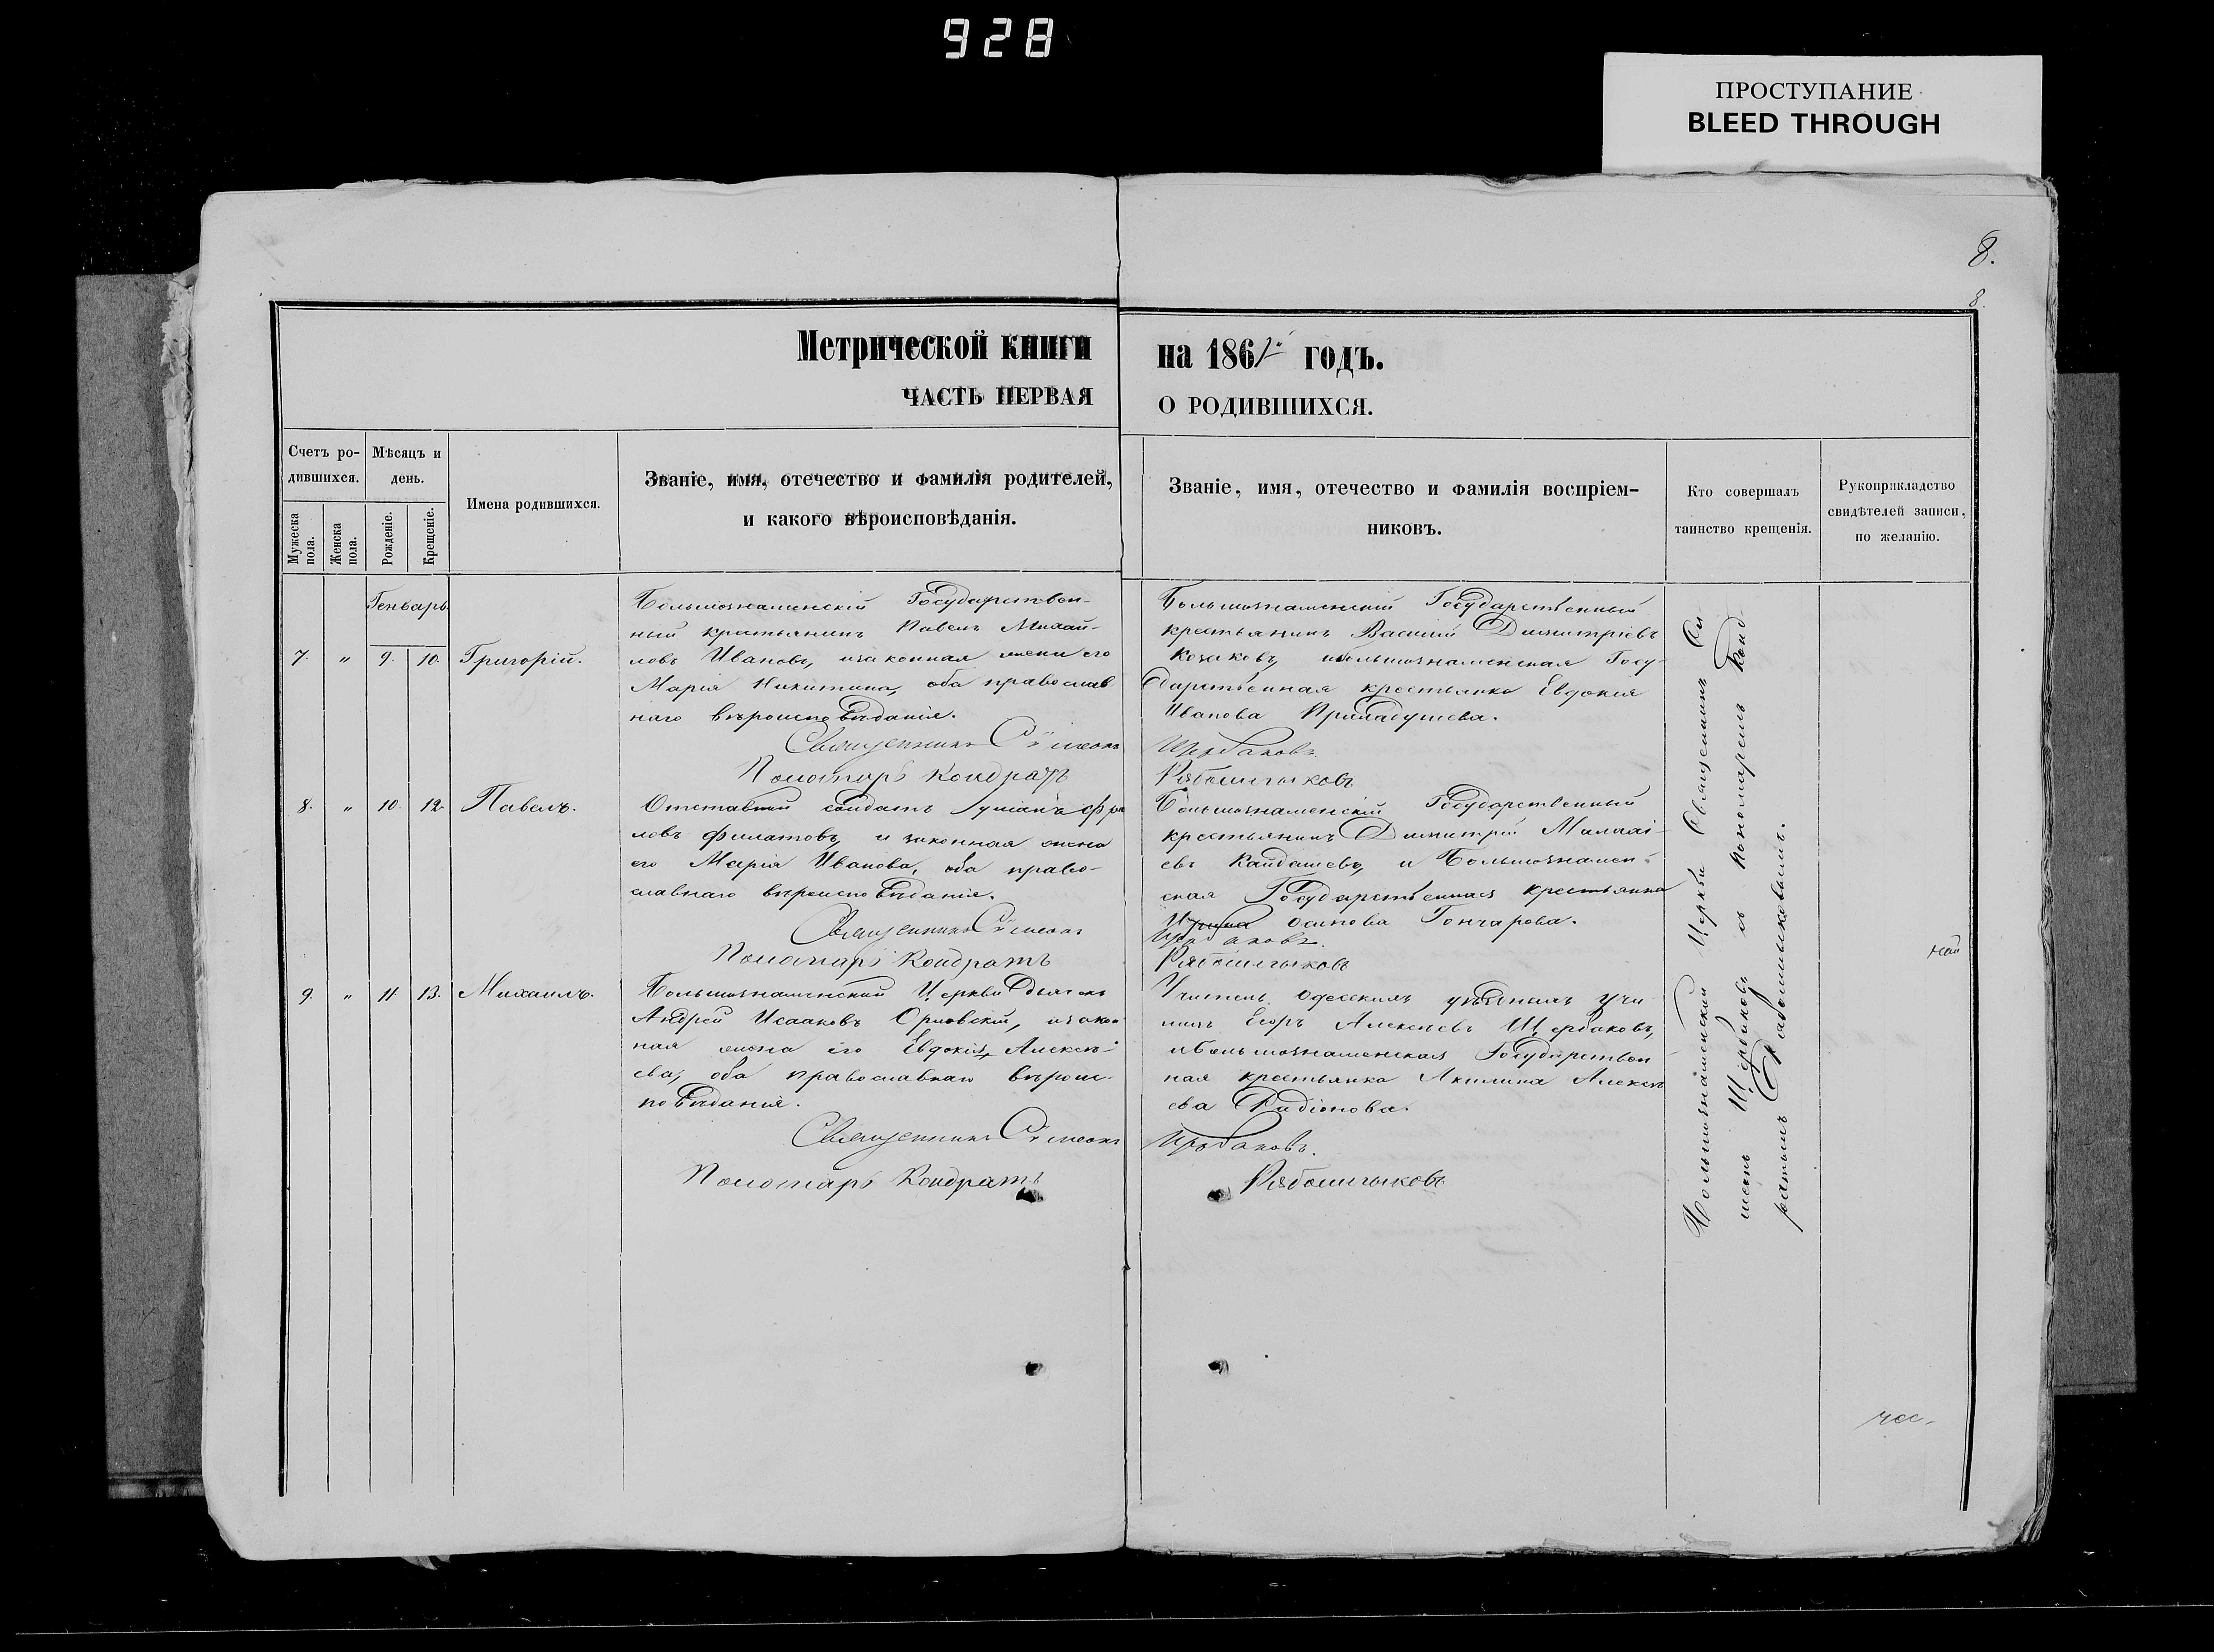 928
ПРОСТУПАНИЕ
BLEED THROUGH
8.
8.
Метрической книги на 1861 годъ.
ЧАСТЬ ПЕРВАЯ О РОДИВШИХСЯ.
Счетъ ро-
дившихся.
Мѣсяцъ и
день.
Мужеска
пола.
Женска
пола.
Рожденіе.
Крещеніе.
Имена родившихся.
Званіе, имя, отечество и фамилія родителей,
и какого вѣроисповѣданія.
Званіе, имя, отечество и фамилія воспріем-
никовъ.
Кто совершалъ
таинство крещенія.
Рукоприкладство
свидѣтелей записи,
по желанію.
Генварь
7. " 9. 10. Григорій.
Большознаменскій Государствен-
ный крестьянинъ Павелъ Михай-
ловъ Ивановъ, изаконная жена его
Марія Никитина, оба православ
наго вѣроисповѣданія.
Священникъ Симеонъ
Пономарь Кондратъ
Большознаменскій Государственный
крестьянинъ Василій Димитріевъ
Козаковъ, ибольшознаменская Госу-
дарственная крестьянка Евдокія
Иванова
Щербаковъ
Рябошлыковъ
8. " 10. 12. Павелъ.
Отставной солдатъ
ловъ Филатовъ, и законная жена
его Марія Иванова, оба право-
славнаго вѣроисповѣданія.
Священникъ Симеонъ
Пономарь Кондратъ
Большознаменскій Государственный
крестьянинъ Димитрій
евъ Кандашевъ, и Большознамен-
ская Государственная крестьянка
Осипова Гончарова.
Щербаковъ.
Рябошлыковъ
9. " 11. 13. Михаилъ.
Большознаменской Церкви Дьячокъ
Андрей Исааковъ Орловскій, изакон
ная жена его Евдокія Алексѣ-
ева, оба православнаго вѣроис-
повѣданія.
Священникъ Симеонъ
Пономарь Кондратъ
Учитель Одесскихъ уѣздныхъ Учи
лищъ Егоръ Алексѣевъ Щербаковъ,
ибольшознаменская Государствен
ная крестьянка Акилина Алексѣ
ева Радіонова.
Щербаковъ.
Рябошлыковъ
Большознаменской Церкви Священникъ Си-
меонъ Щербаковъ съ Пономаремъ Конд-
ратомъ Рябошлыковымъ.